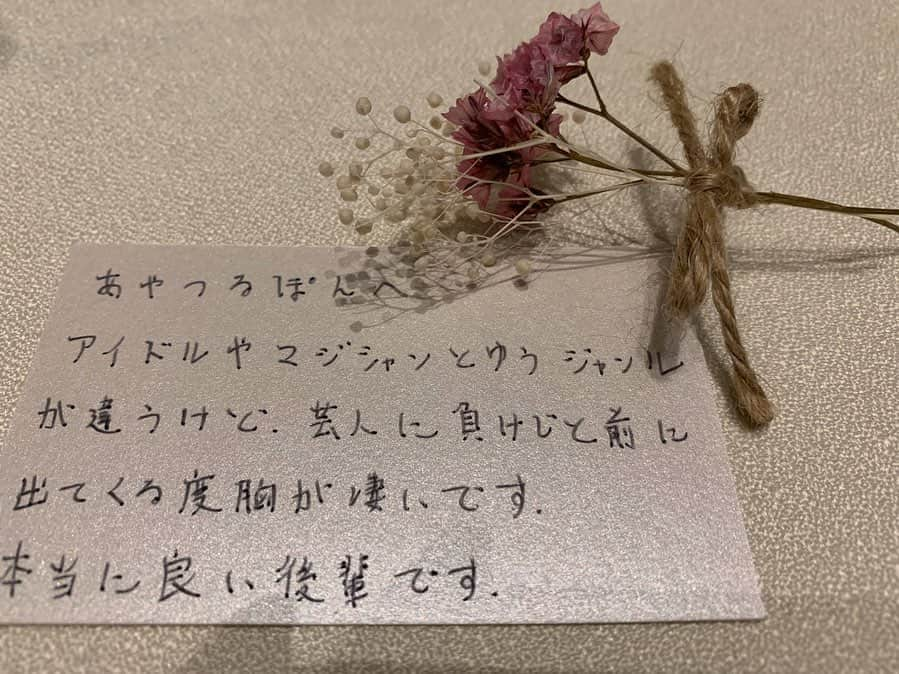 あやつるぽんへ
アイドルやマジシャンとゆうジャンル
が違うけど.芸人に負けじと前に
出てくる度胸が凄いです.
本当に良い後輩です.